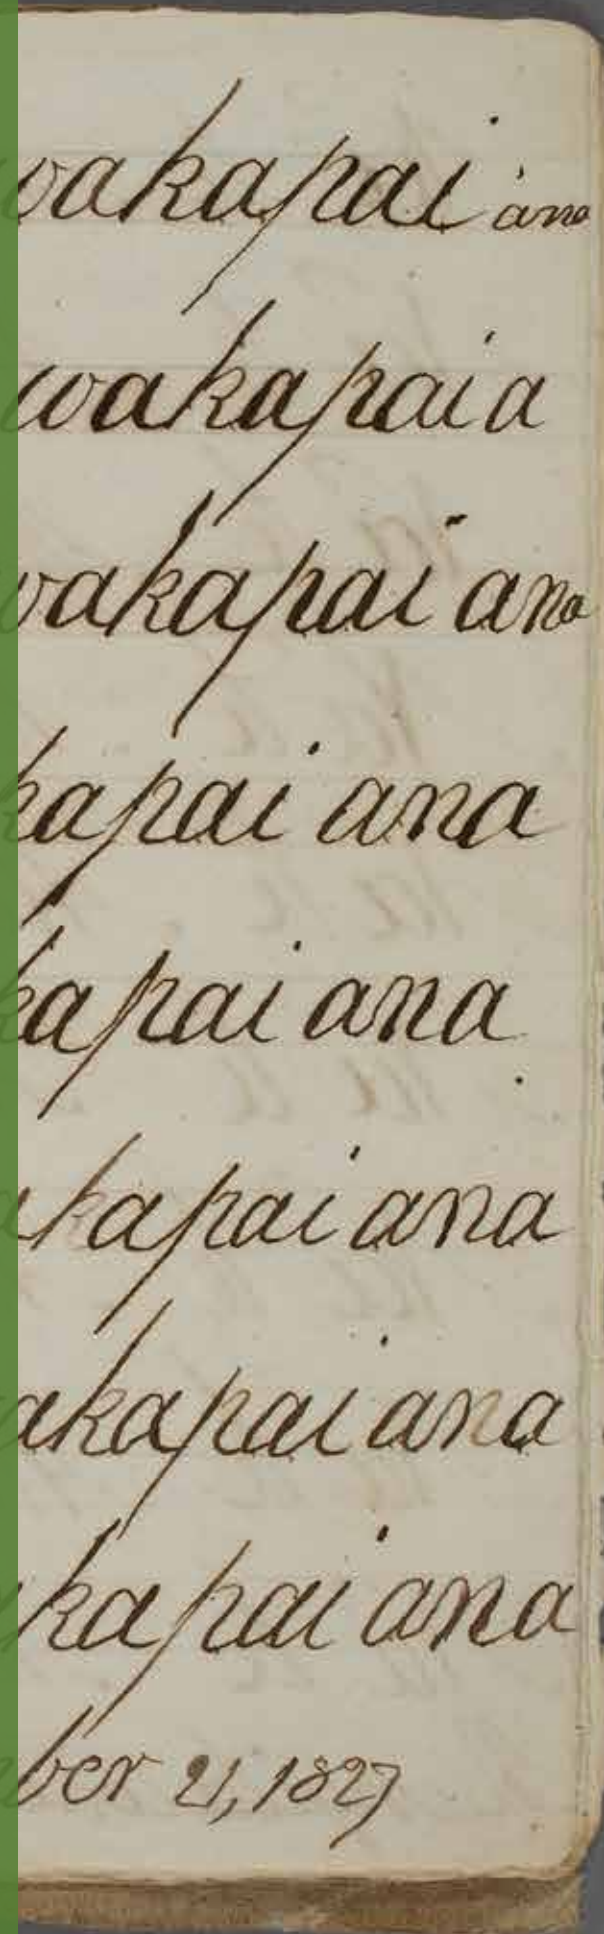 wakapai ana
wakapai a
wakapai ana
kapai ana
kapai ana
akapai ana
akapai ana
kapai ana
ber 21, 1827